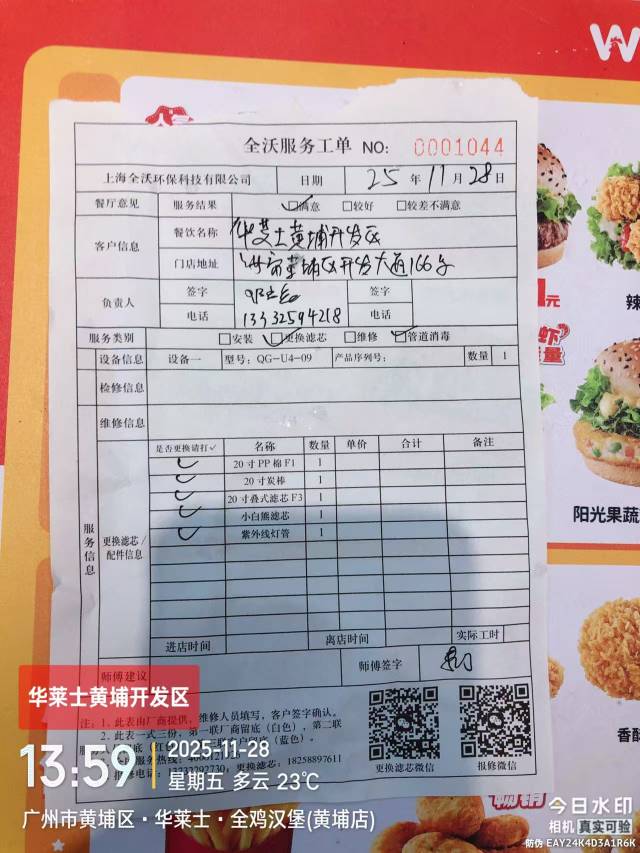 全沃服务工单 NO: 0001044
上海全沃环保科技有限公司 日期 25 年 11 月 28 日
餐厅意见 服务结果 ☑满意 □较好 □较差不满意
客户信息 餐饮名称 华莱士黄埔开发区
门店地址 广州市黄埔区开发大道166号
负责人 签字 签字
电话 13332594218 电话
服务类别 □安装 ☑更换滤芯 □维修 ☑管道消毒
设备信息 设备一 型号: QG-U4-09 产品序列号: 数量 1
检修信息
维修信息
服务信息
更换滤芯/配件信息
是否更换请打✓ 名称 数量 单价 合计 备注
✓ 20寸PP棉F1 1
✓ 20寸炭棒 1
✓ 20寸叠式滤芯F3 1
✓ 小白熊滤芯 1
✓ 紫外线灯管 1
进店时间 离店时间 实际工时
师傅建议 师傅签字
注: 1、此表由厂商提供, 维修人员填写, 客户签字确认。
2、此表一式三份, 第一联厂商留底(白色), 第二联
更换滤芯: 18258897611
更换滤芯微信 报修微信
华莱士黄埔开发区
13:59
2025-11-28
星期五 多云 23℃
广州市黄埔区·华莱士·全鸡汉堡(黄埔店)
今日水印
相机 真实可验
防伪 EAY24K4D3A1R6K
W
元
辣
虾
量
阳光果蔬
香酥
畅销